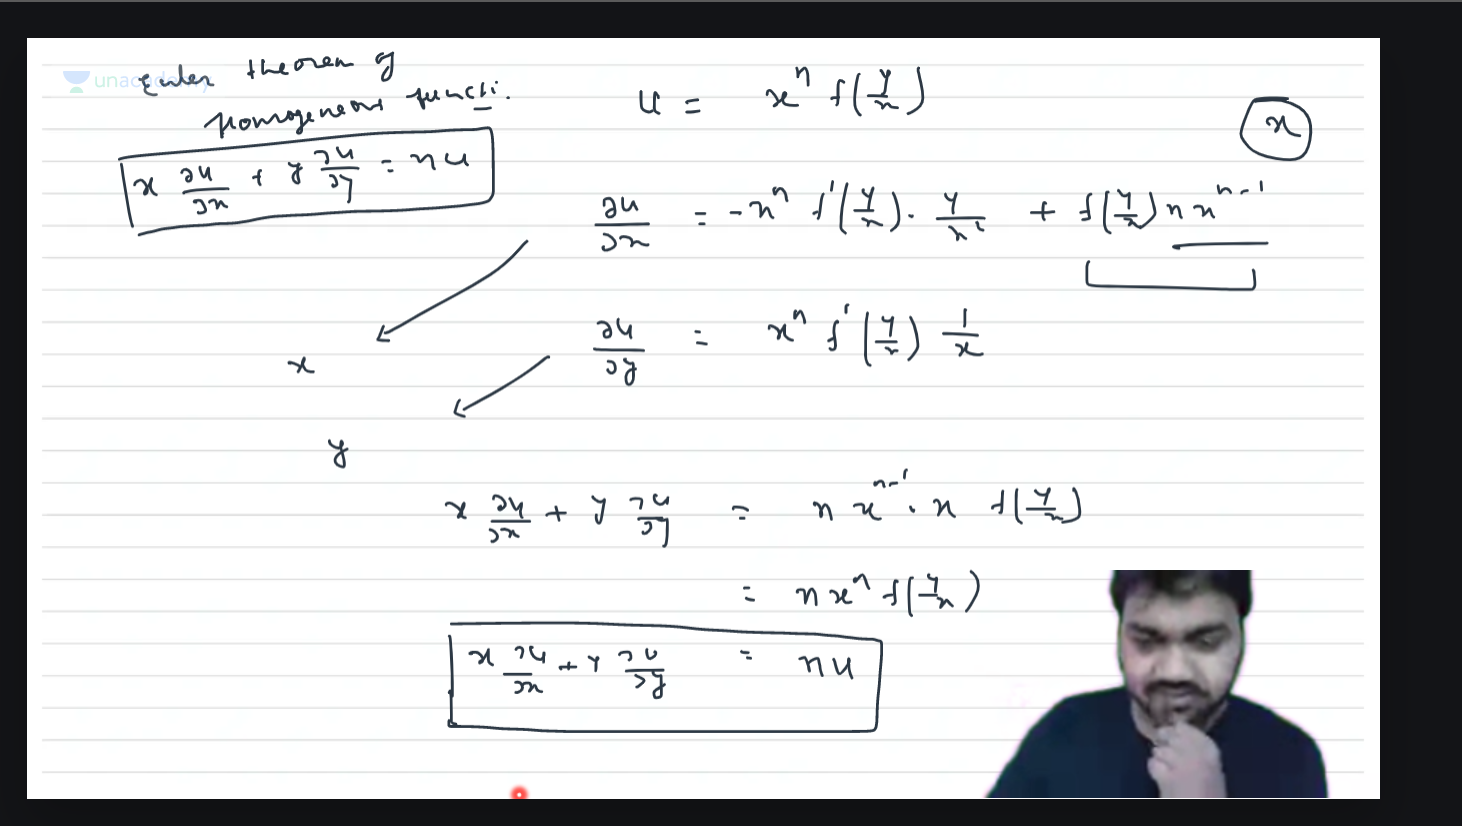 unacademy
Euler theorem of
homogeneous functi.
x ∂u/∂x + y ∂u/∂y = nu
u = x^n f(y/x)
x
∂u/∂x = -x^n f'(y/x) · y/x² + f(y/x) n x^(n-1)
∂u/∂y = x^n f'(y/x) 1/x
x
y
x ∂u/∂x + y ∂u/∂y = n x^(n-1) · x f(y/x)
= n x^n f(y/x)
x ∂u/∂x + y ∂u/∂y = nu